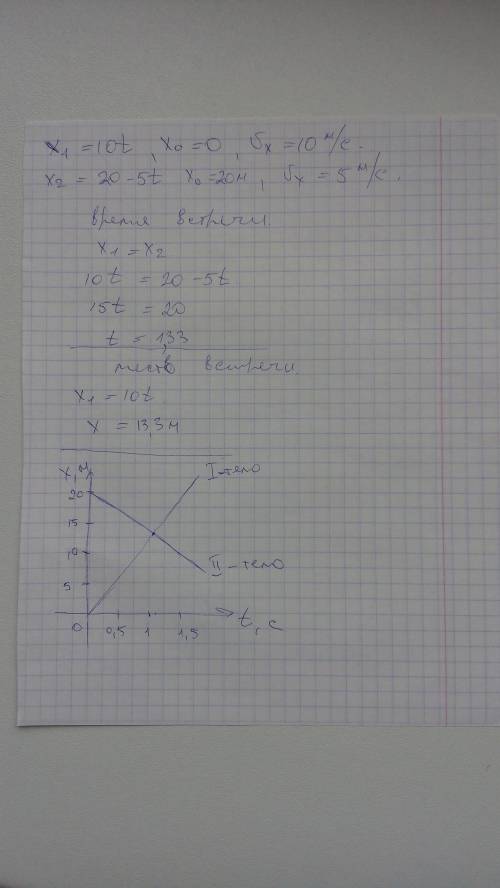 x₁ = 10t, x₀ = 0, υₓ = 10 м/с.
x₂ = 20 - 5t x₀ = 20м, υₓ = 5 м/с.
время встречи.
x₁ = x₂
10t = 20 - 5t
15t = 20
t = 1,33
место встречи
x₁ = 10t
x = 13,3м
x, м
I-тело
20
15
10
5
II-тело
0 0,5 1 1,5 t, с